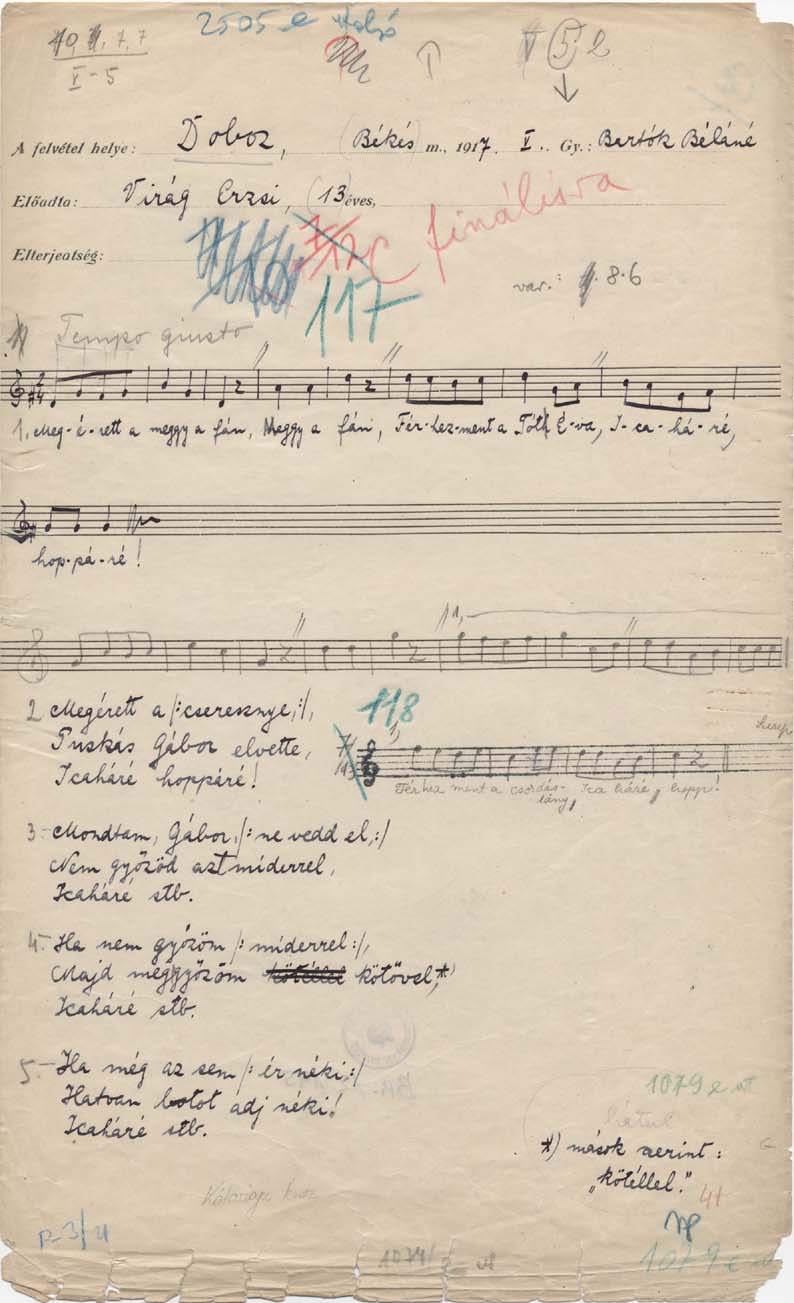 2505 e utolsó
10, 11, 7, 7
V-5
5 2
A felvétel helye: Doboz, (Békés) m., 1917. I.. Gy.: Bartók Béláné
Előadta: Virág Erzsi, (13 éves,
Elterjedtség:
C finálisra
117
var.: 8·6
Tempo giusto
1. Meg-é-rett a meggy a fán, Meggy a fán, Fér-hez-ment a Tóth É-va, I-ca-há-ré,
hop-pá-ré!
2 Megérett a /:cseresznye,:/,
Puskás Gábor elvette,
Icaháré hoppáré!
118
Férhez ment a csordás-lány, Ica háré, hopp!
3.- Mondtam, Gábor, /: ne vedd el,:/
Nem győzöd azt míderrel,
Icaháré stb.
4.- Ha nem győzöm /: míderrel :/,
Majd meggyőzöm kötéllel kötővel,*)
Icaháré stb.
5.- Ha még az sem /: ér néki:/
Hatvan botot adj néki!
Icaháré stb.
1079 e
hátul
*) mások szerint:
„kötéllel."
41
1079